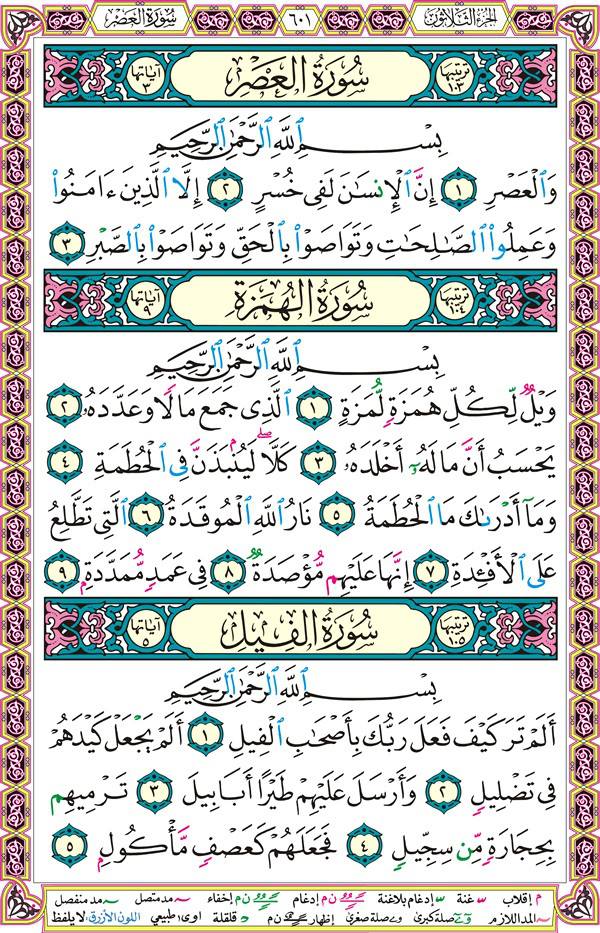 الجزء الثلاثون ٦٠١ سورة العصر
ترتيبها ١٠٣ سُورَةُ الْعَصْرِ آياتها ٣
بِسْمِ اللَّهِ الرَّحْمَٰنِ الرَّحِيمِ
وَالْعَصْرِ ١ إِنَّ الْإِنسَانَ لَفِي خُسْرٍ ٢ إِلَّا الَّذِينَ ءَامَنُوا
وَعَمِلُوا الصَّالِحَاتِ وَتَوَاصَوْا بِالْحَقِّ وَتَوَاصَوْا بِالصَّبْرِ ٣
ترتيبها ١٠٤ سُورَةُ الْهُمَزَةِ آياتها ٩
بِسْمِ اللَّهِ الرَّحْمَٰنِ الرَّحِيمِ
وَيْلٌ لِّكُلِّ هُمَزَةٍ لُّمَزَةٍ ١ الَّذِي جَمَعَ مَالًا وَعَدَّدَهُ ٢
يَحْسَبُ أَنَّ مَالَهُ أَخْلَدَهُ ٣ كَلَّا ۖ لَيُنبَذَنَّ فِي الْحُطَمَةِ ٤
وَمَا أَدْرَىٰكَ مَا الْحُطَمَةُ ٥ نَارُ اللَّهِ الْمُوقَدَةُ ٦ الَّتِي تَطَّلِعُ
عَلَى الْأَفْـِٔدَةِ ٧ إِنَّهَا عَلَيْهِم مُّؤْصَدَةٌ ٨ فِي عَمَدٍ مُّمَدَّدَةٍ ٩
ترتيبها ١٠٥ سُورَةُ الْفِيلِ آياتها ٥
بِسْمِ اللَّهِ الرَّحْمَٰنِ الرَّحِيمِ
أَلَمْ تَرَ كَيْفَ فَعَلَ رَبُّكَ بِأَصْحَابِ الْفِيلِ ١ أَلَمْ يَجْعَلْ كَيْدَهُمْ
فِي تَضْلِيلٍ ٢ وَأَرْسَلَ عَلَيْهِمْ طَيْرًا أَبَابِيلَ ٣ تَرْمِيهِم
بِحِجَارَةٍ مِّن سِجِّيلٍ ٤ فَجَعَلَهُمْ كَعَصْفٍ مَّأْكُولٍ ٥
م إقلاب غنة إدغام بلاغنة ن م إدغام ن م إخفاء مد متصل مد منفصل
المد اللازم صلة كبرى صلة صغرى إظهار ن م قلقلة اوى طبيعي اللون الأزرق: لا يلفظ